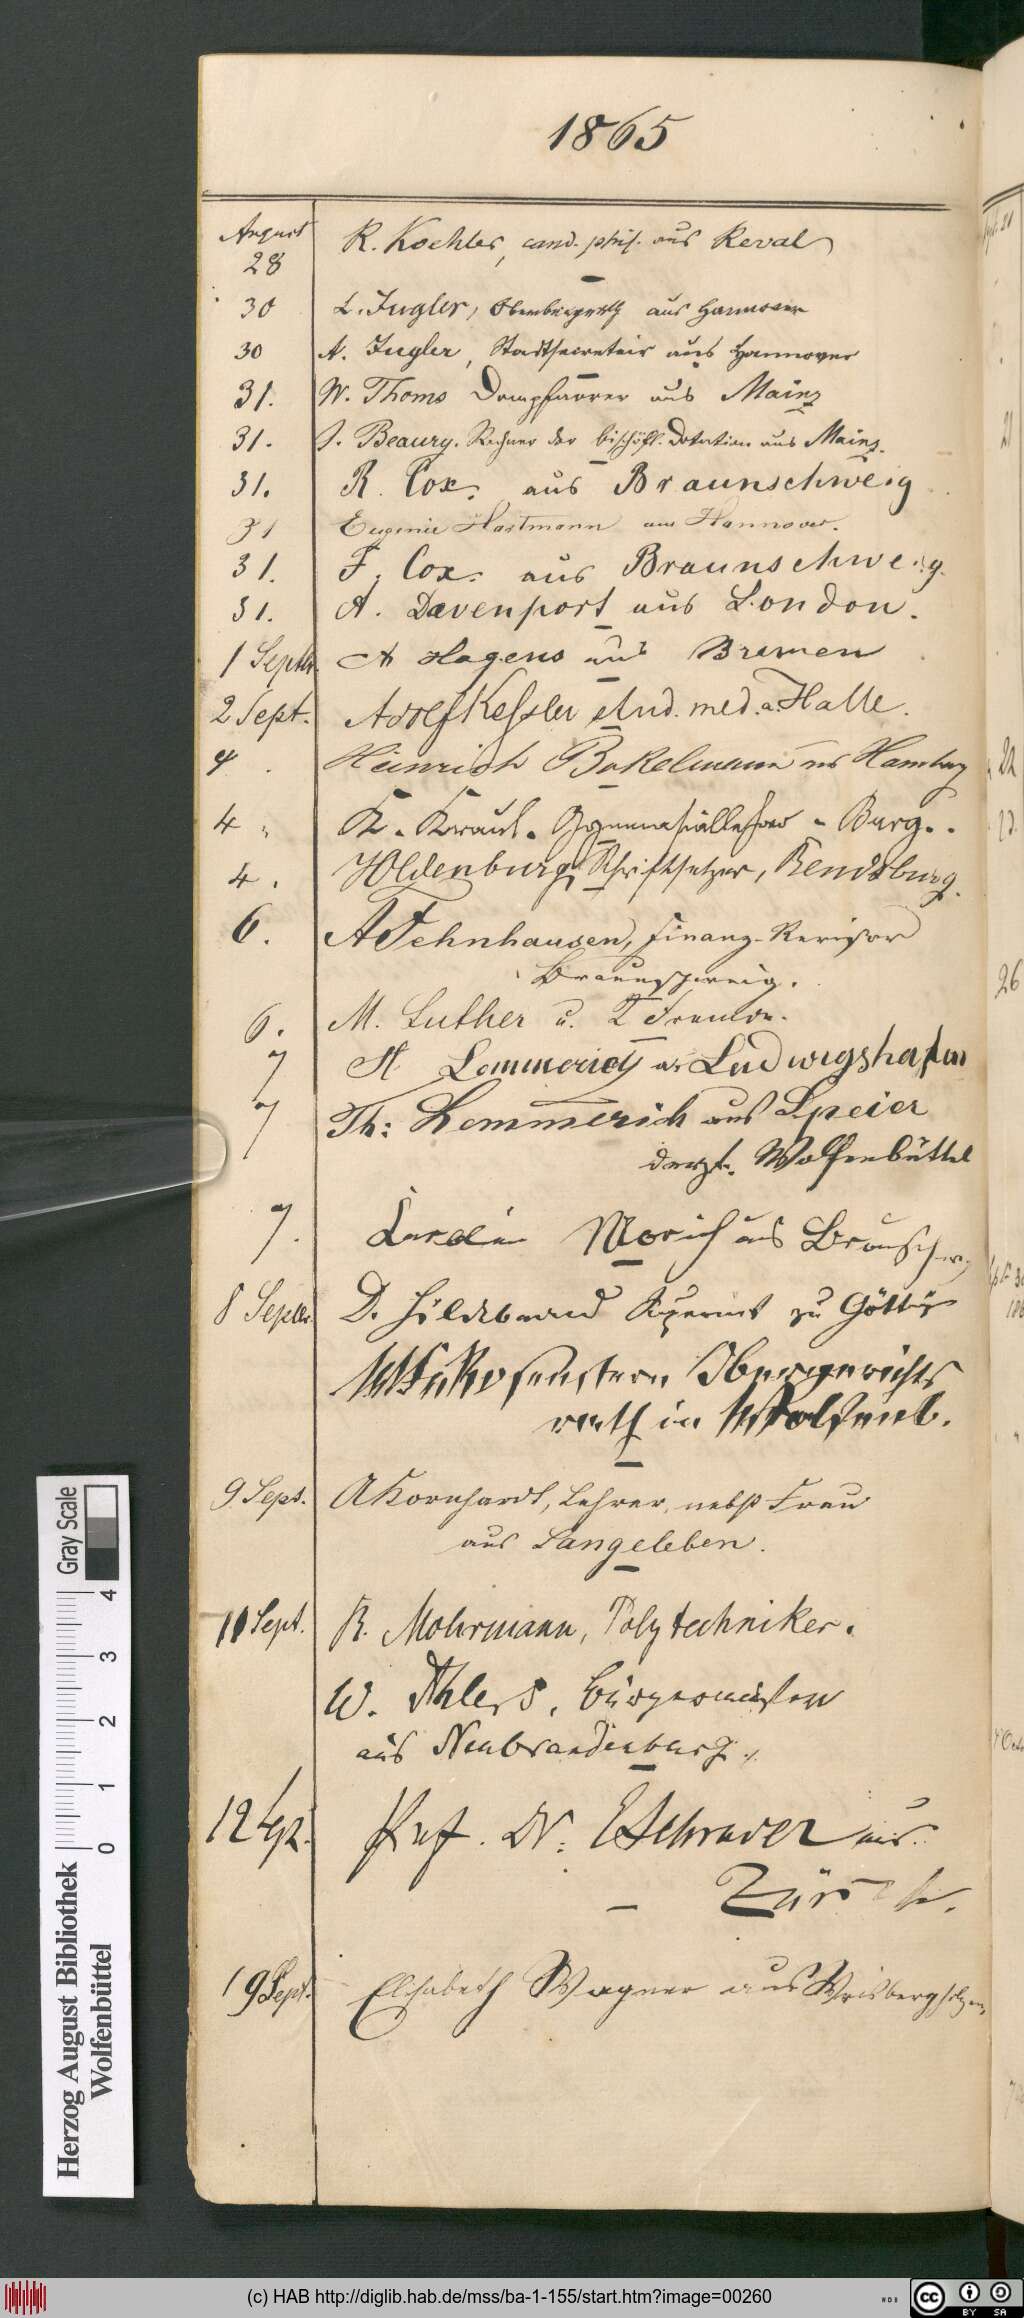 1865
August
28 R. Koehler, cand. phil. aus Reval
30 L. Jugler, aus Hannover
30 A. Jugler, Stadtsecretair aus Hannover
31. W. Thoms Dompfarrer aus Mainz
31. J. Beaury. Rechner der bischöfl. Dotation aus Mainz.
31. R. Cox. aus Braunschweig
31 Eugenie Hartmann aus Hannover.
31. F. Cox. aus Braunschweig.
31. A. Davenport aus London.
1 Septbr. A Hagens aus Bremen
2 Sept. Adolf Keßler stud. med. a. Halle.
4 . Heinrich Bokelmann aus Hamburg
4 " K. Kraut. Gymnasiallehrer - Burg..
4. Oldenburg, Schriftsetzer, Rendsburg.
6. A Fehnhausen, Finanz-Revisor
Braunschweig.
6. M. Luther u. Fremde.
7 H Lemmerich a. Ludwigshafen
7 Th: Lemmerich aus Speier
derzt. Wolfenbüttel
7. Morich aus Braunschweig
8 Septbr. D. Hildebrand zu Göttingen
Rosenstern Obergerichts
rath in Wolfenb.
9 Sept. A Kornhardt, Lehrer, nebst Frau
aus Langeleben.
11 Sept. R. Mohrmann, Polytechniker.
W. Ahlers, Bürgermeister
aus Neubrandenburg.
12 Sept. Prof. Dr. E Schrader aus
Zürich.
19 Sept. Elisabeth Wagner aus Wrisbergholzen
Herzog August Bibliothek
Wolfenbüttel
0 1 2 3 4
Gray Scale
(c) HAB http://diglib.hab.de/mss/ba-1-155/start.htm?image=00260
cc BY SA